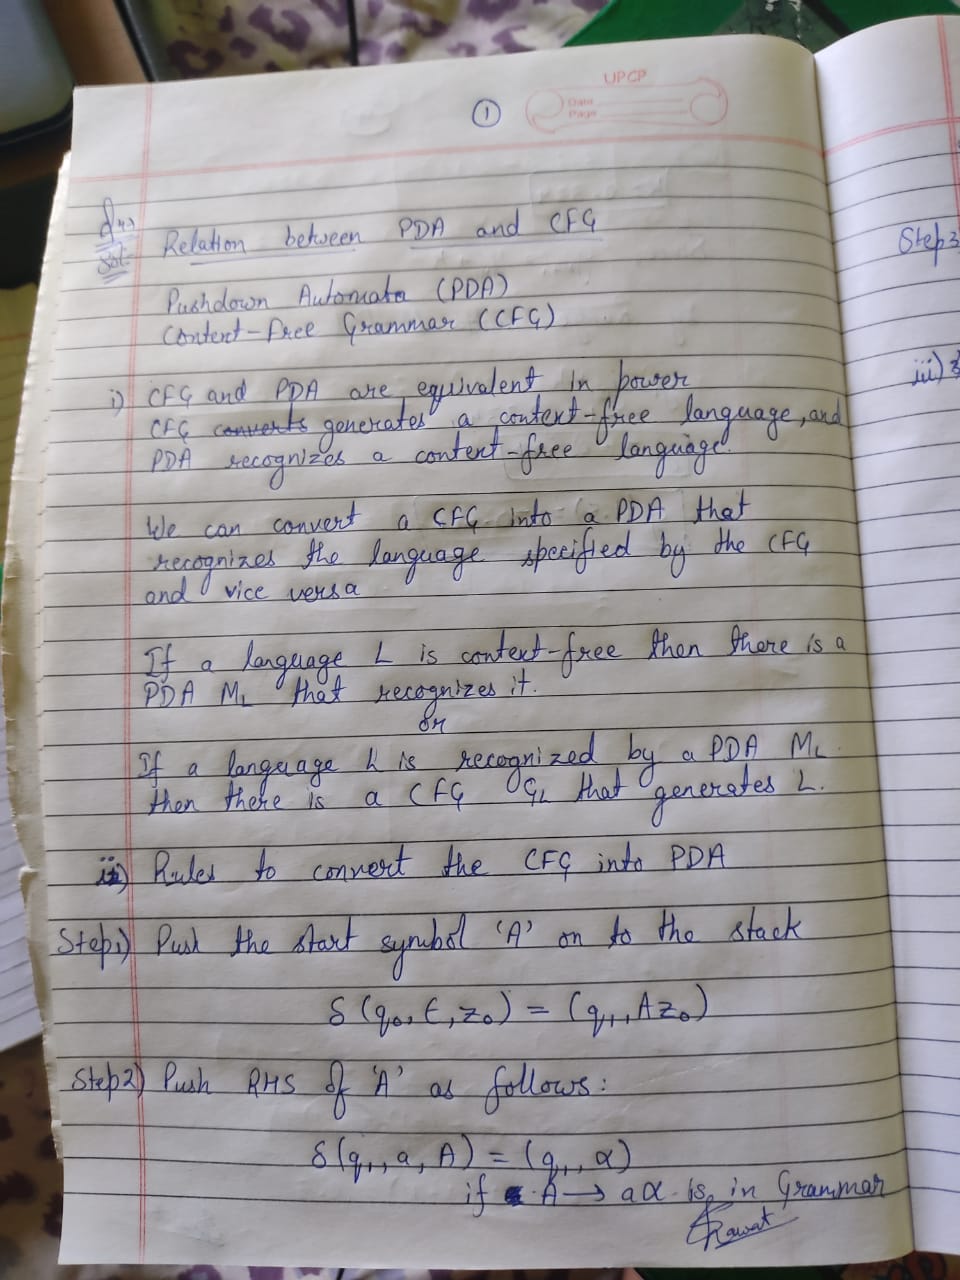 UPCP
①
Date
Page
Sol-
Relation between PDA and CFG
Pushdown Automata (PDA)
Context-Free Grammar (CFG)
i) CFG and PDA are equivalent in power
CFG converts generates a context-free language, and
PDA recognizes a context-free language.
We can convert a CFG into a PDA that
recognizes the language specified by the CFG
and vice versa
If a language L is context-free then there is a
PDA ML that recognizes it.
or
If a language L is recognized by a PDA ML
then there is a CFG GL that generates L.
ii) Rules to convert the CFG into PDA
Step1) Push the start symbol 'A' on to the stack
δ(q0, ε, z0) = (q1, Az0)
Step2) Push RHS of 'A' as follows:
δ(q1, a, A) = (q1, α)
if A → aα is in Grammar
Rawat
Step3
iii)